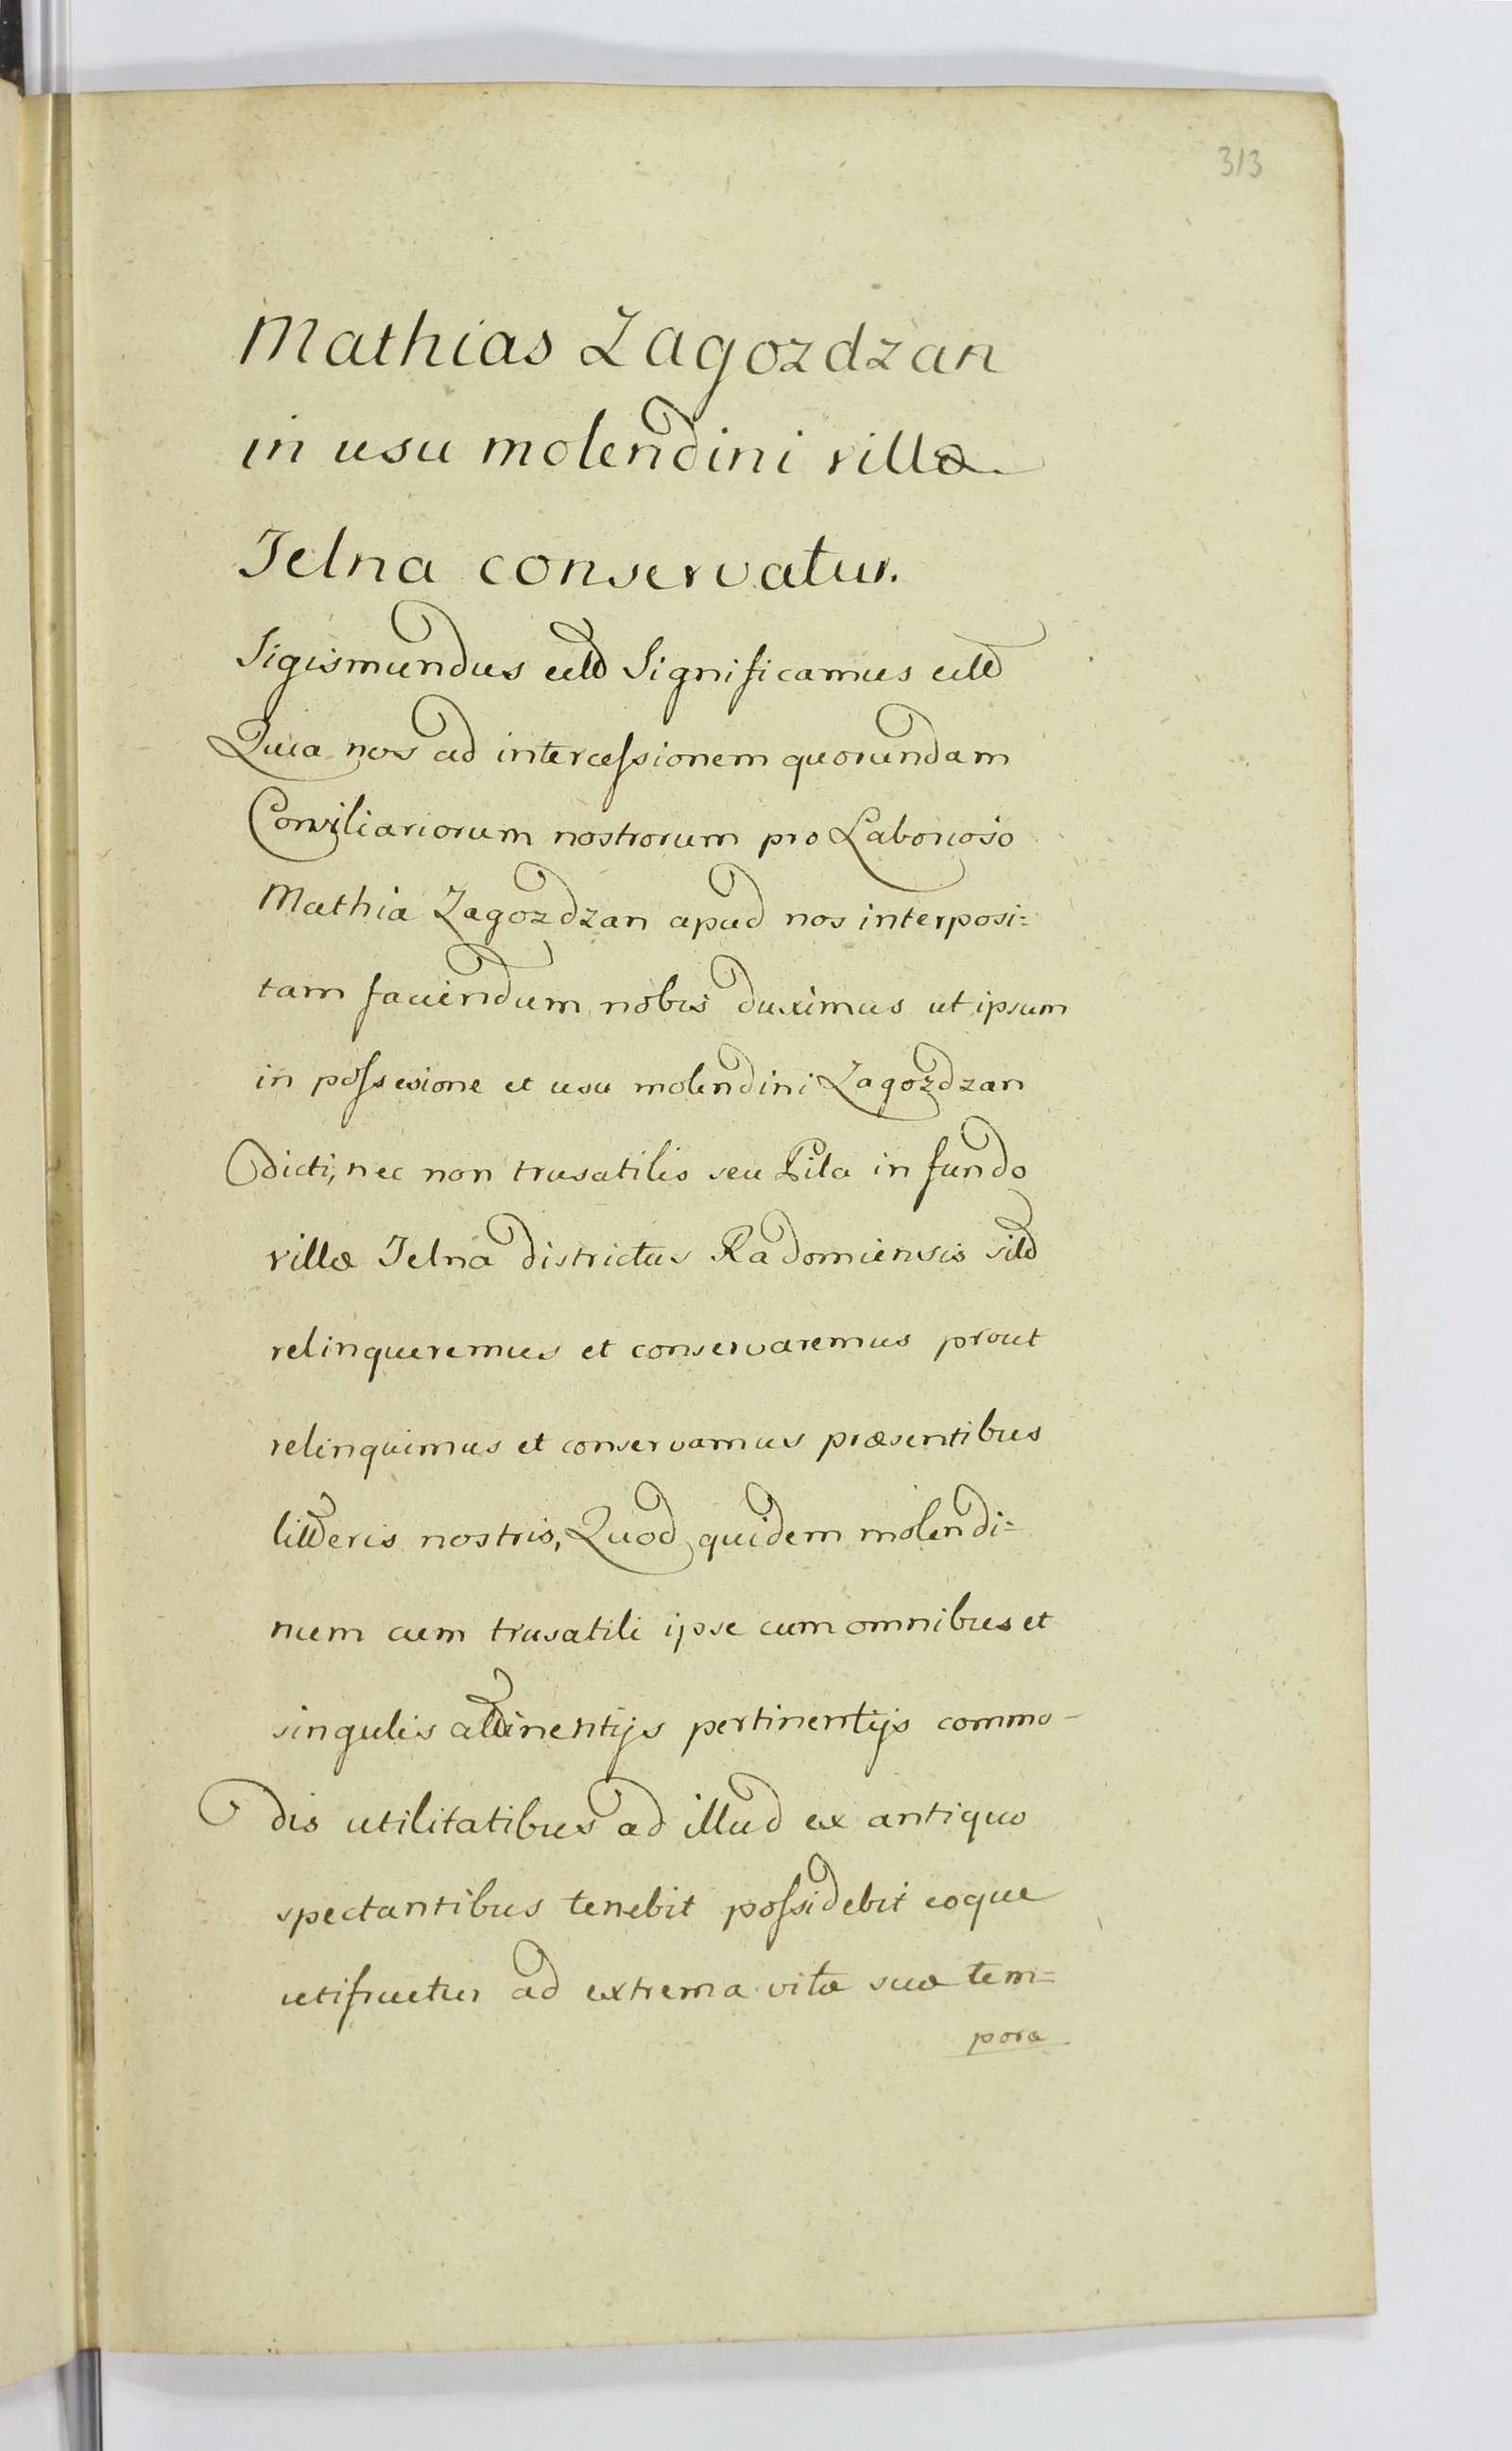 313
Mathias Zagozdzan
in usu molendini villæ
Jelna conservatur.
Sigismundus ettc Significamus ettc
Quia nos ad intercessionem quorundam
Consiliariorum nostrorum pro Laborioso
Mathia Zagozdzan apud nos interposi=
tam faciendum nobis duximus ut ipsum
in possesione et usu molendini Zagozdzan
dicti, nec non trusatilis seu Pila in fundo
villæ Jelna districtus Radomiensis siti
relinqueremus et conservaremus prout
relinquimus et conservamus præsentibus
litteris nostris, Quod quidem molendi=
num cum trusatili ipse cum omnibus et
singulis attinentijs pertinentijs commo-
dis utilitatibus ad illud ex antiquo
spectantibus tenebit possidebit eoque
utifruetur ad extrema vitæ suæ tem=
pora